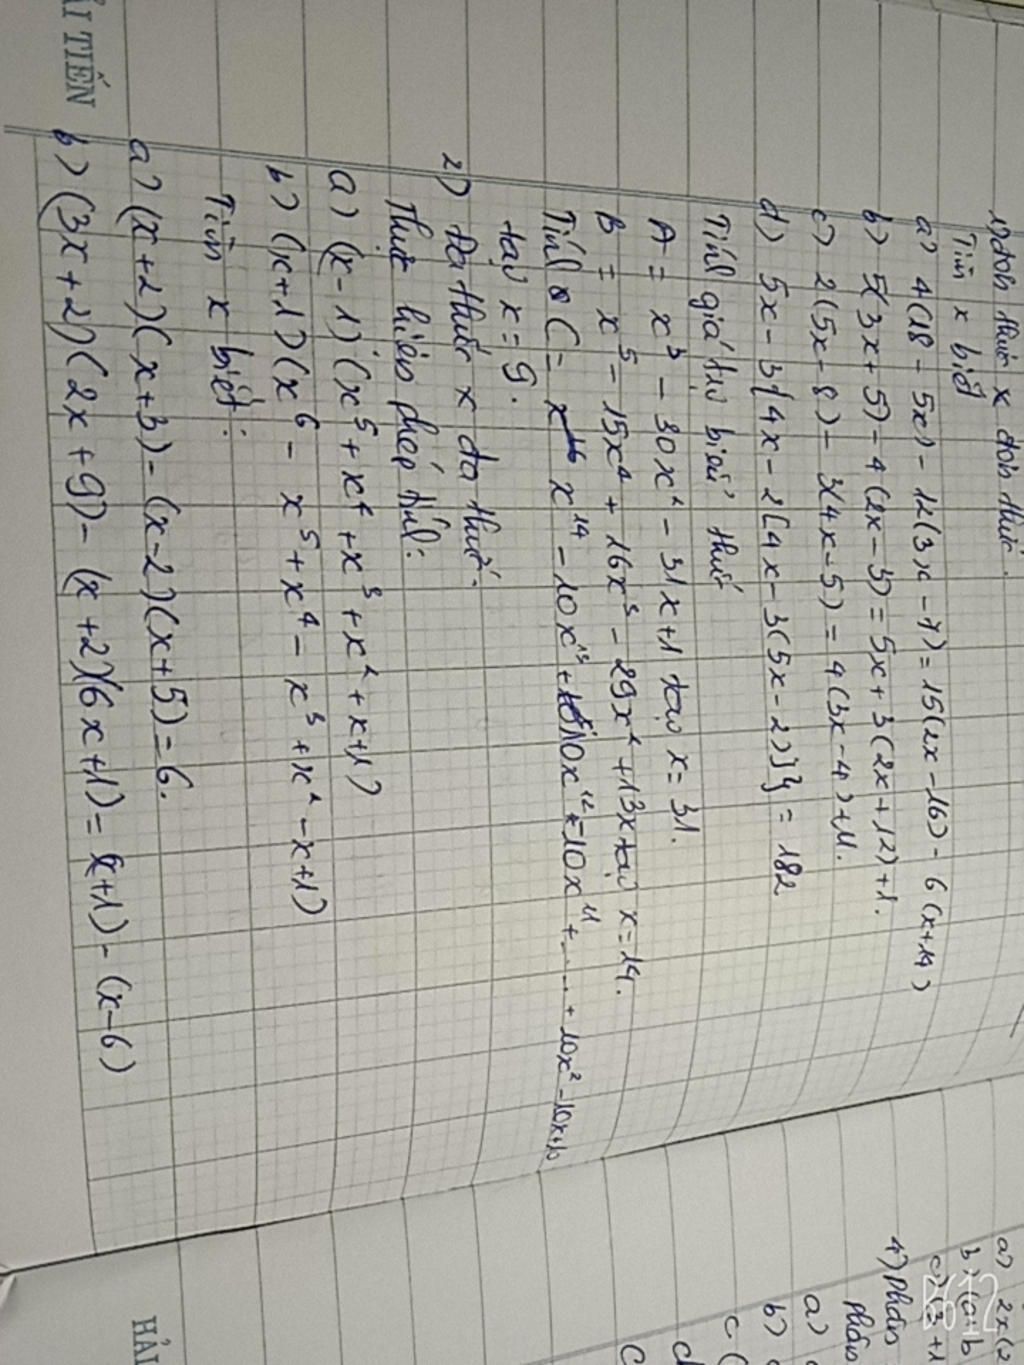 1) đơn thức x đơn thức.
Tìm x biết
a) 4(18 - 5x) - 12(3x - 7) = 15(2x - 16) - 6(x+14)
b) 5(3x+5) - 4(2x - 3) = 5x + 3(2x + 12) + 1.
c) 2(5x - 8) - 3(4x - 5) = 4(3x - 4) + 11.
d) 5x - 3{4x - 2[4x - 3(5x - 2)]} = 182
Tính giá trị biểu thức
A = x³ - 30x² - 31x + 1 tại x = 31.
B = x⁵ - 15x⁴ + 16x³ - 29x² + 13x tại x = 14.
Tính C = x¹⁴ - 10x¹³ + 10x¹² - 10x¹¹ + ..... + 10x² - 10x + 10
tại x = 9.
2) Đa thức x đa thức.
Thực hiện phép tính:
a) (x - 1)(x⁵ + x⁴ + x³ + x² + x + 1)
b) (x + 1)(x⁶ - x⁵ + x⁴ - x³ + x² - x + 1)
Tìm x biết:
a) (x + 2)(x + 3) - (x - 2)(x + 5) = 6.
b) (3x + 2)(2x + 9) - (x + 2)(6x + 1) = (x + 1) - (x - 6)
ẢI TIẾN
a) 2x(2
b) (a - b
c) (3 + 1
4) Phân
phân
a)
b)
c (
d
C
HẢI
B612